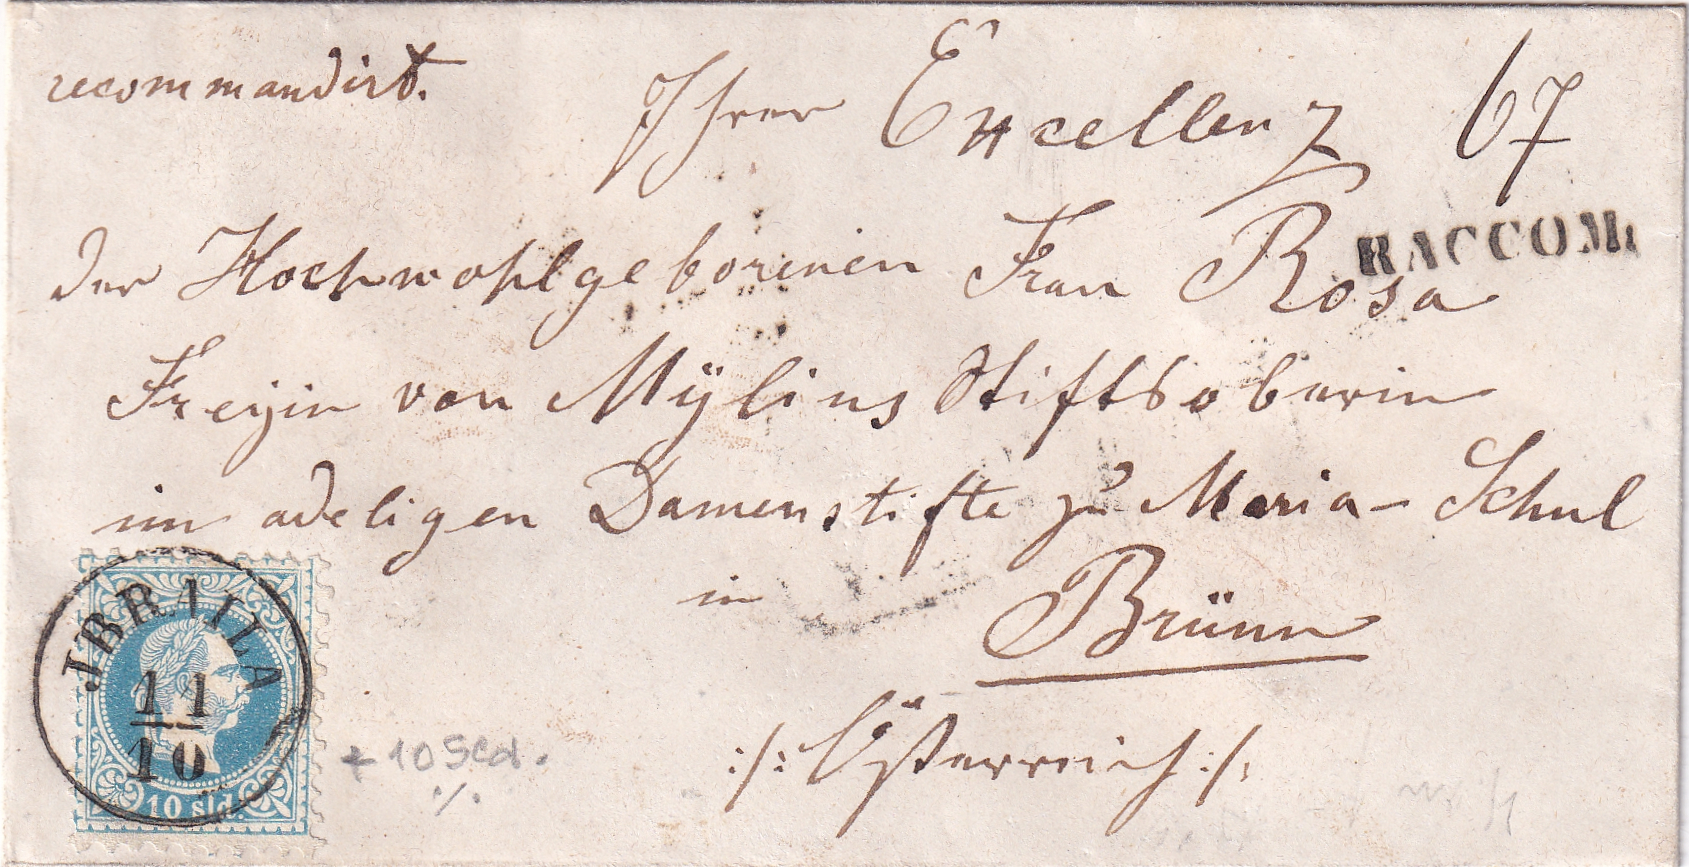 recommandirt.
Ihrer Excellenz 67
RACCOM:
der Hochwohlgeborenen Frau Rosa
Freyin von Mÿlius Stiftsoberin
im adeligen Damenstifte zu Maria-Schul
in Brünn
:/: Österreich :/:
JBRAILA
11
10
10 sld.
+ 10 Sld.